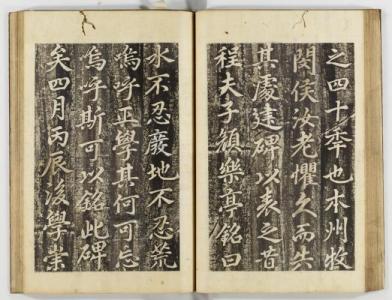 之四十年也本州牧
閔侯汝老懼久而失
其處建碑以表之昔
程夫子顏樂亭銘曰
水不忍廢地不忍荒
嗚呼正學其何可忘
嗚呼斯可以銘此碑
矣四月丙辰後學崇